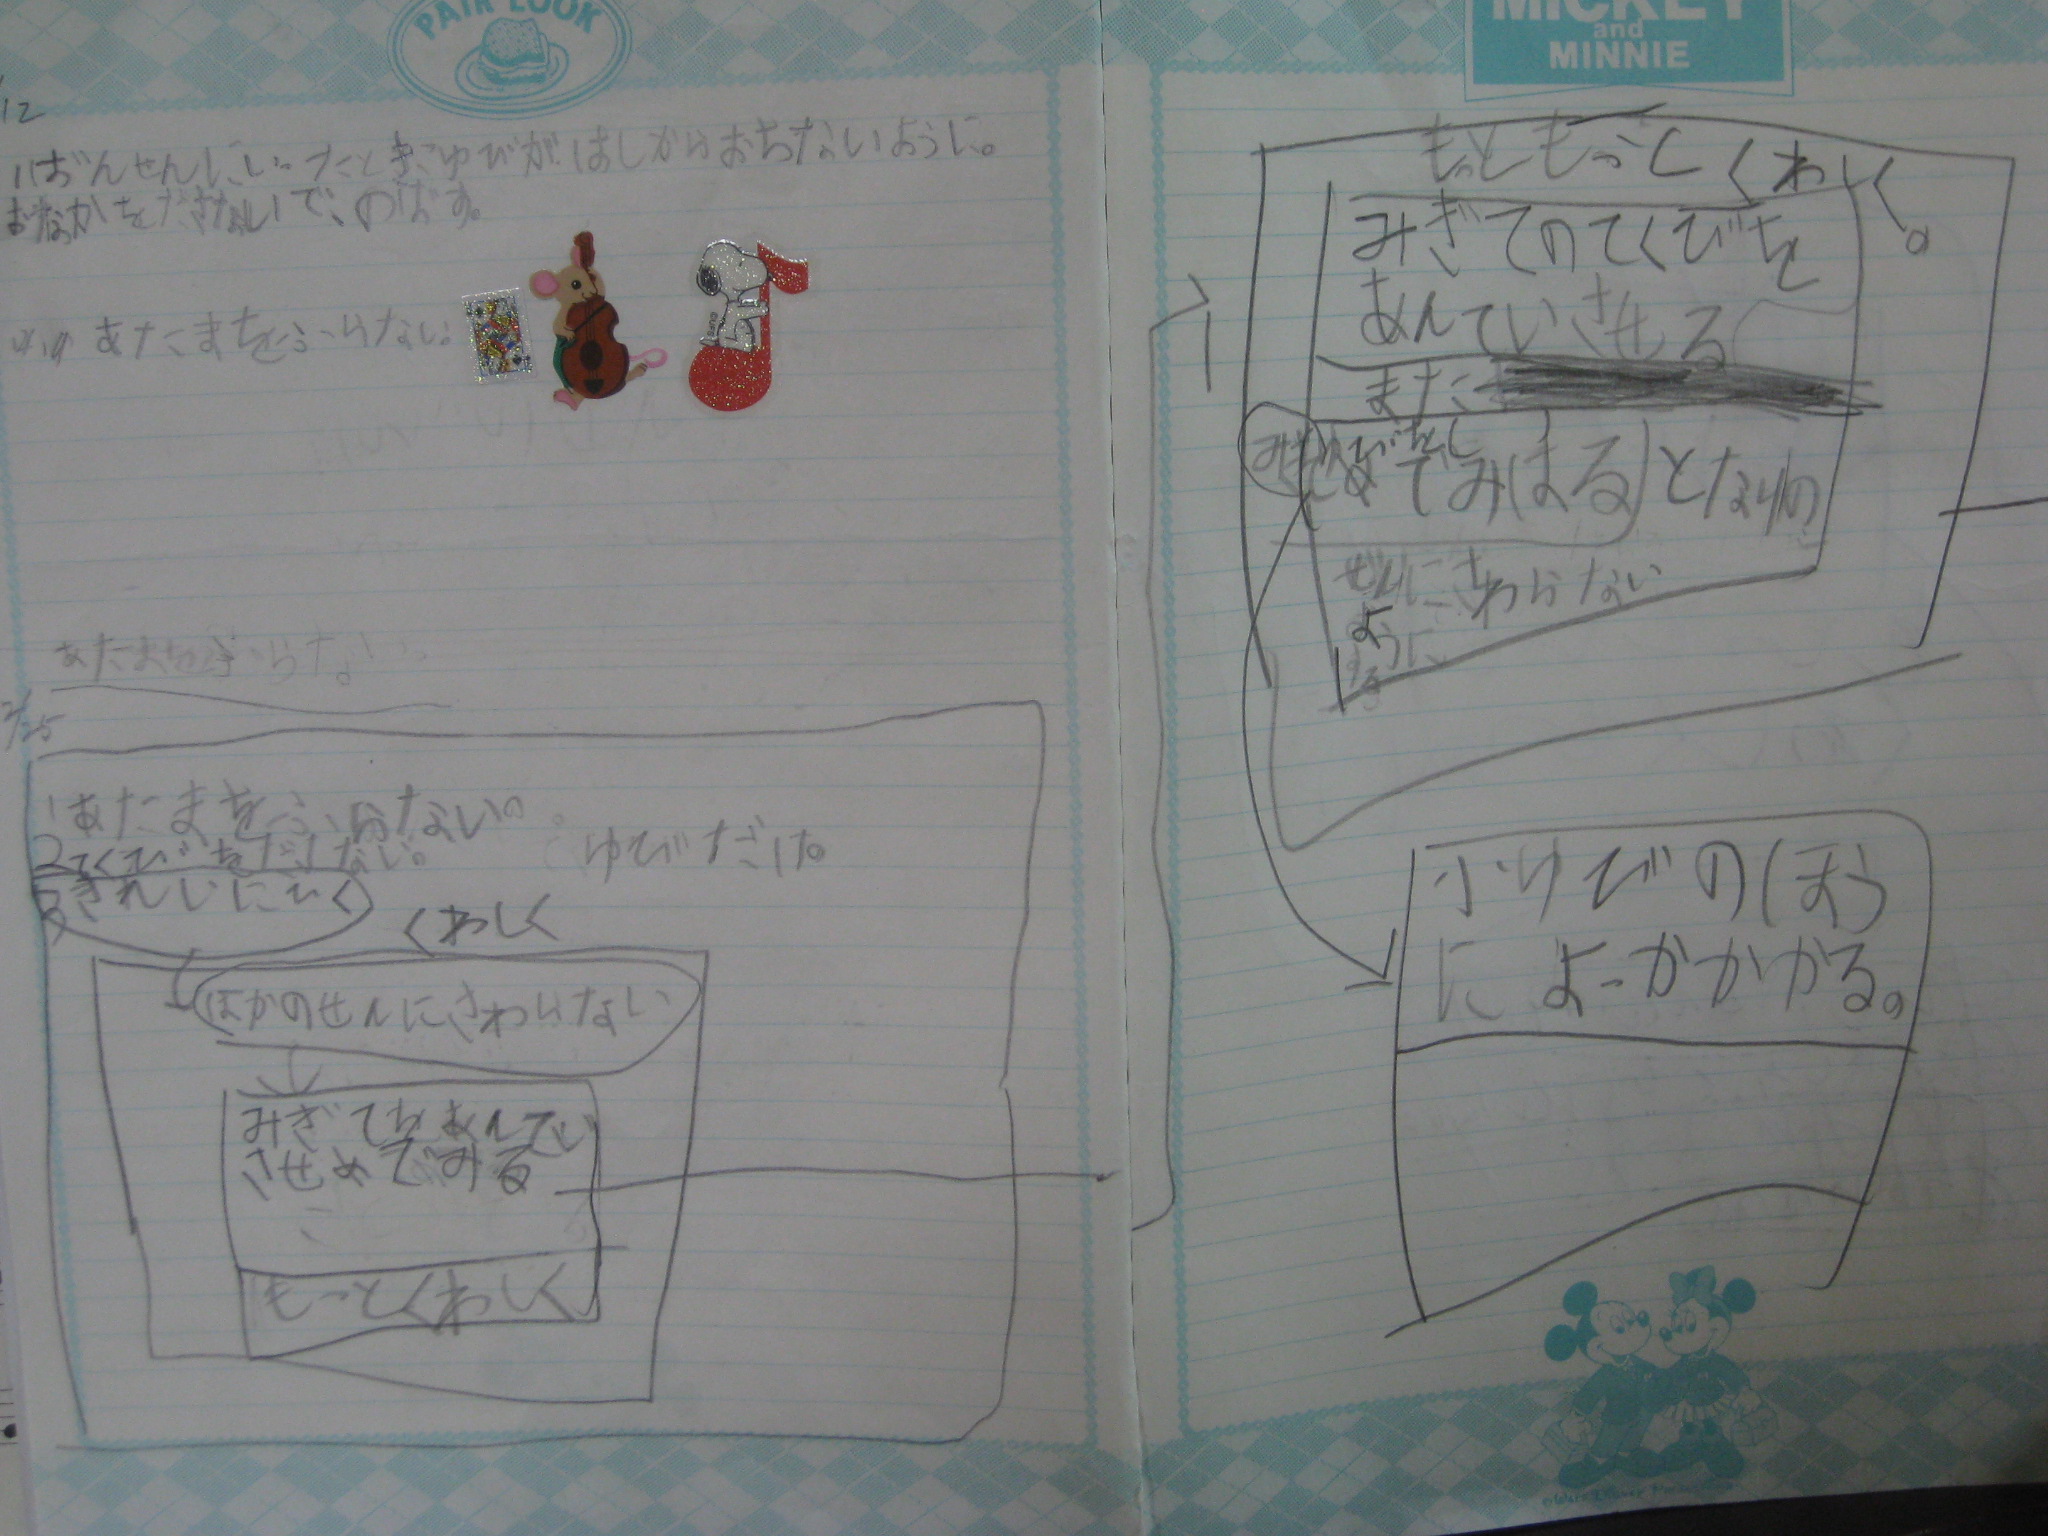 PAIR LOOK
/12
ばんせんにいったときこゆびがはしからおちないように。
おなかをださないで、のばす。
あたまをふらない。
あたまをふらない。
/25
1あたまをふらない。
2てくびをださない。 ゆびだけ。
3きれいにひく
くわしく
ほかのせんにさわらない
みぎてをあんてい
させめてみる
もっとくわしく
MICKEY
and
MINNIE
もっともっとくわしく。
みぎてのてくびを
あんていさせる
また
てみ(まる)となりの
せんにさわらない
ように
する
小ゆびのほう
によっかかかる。